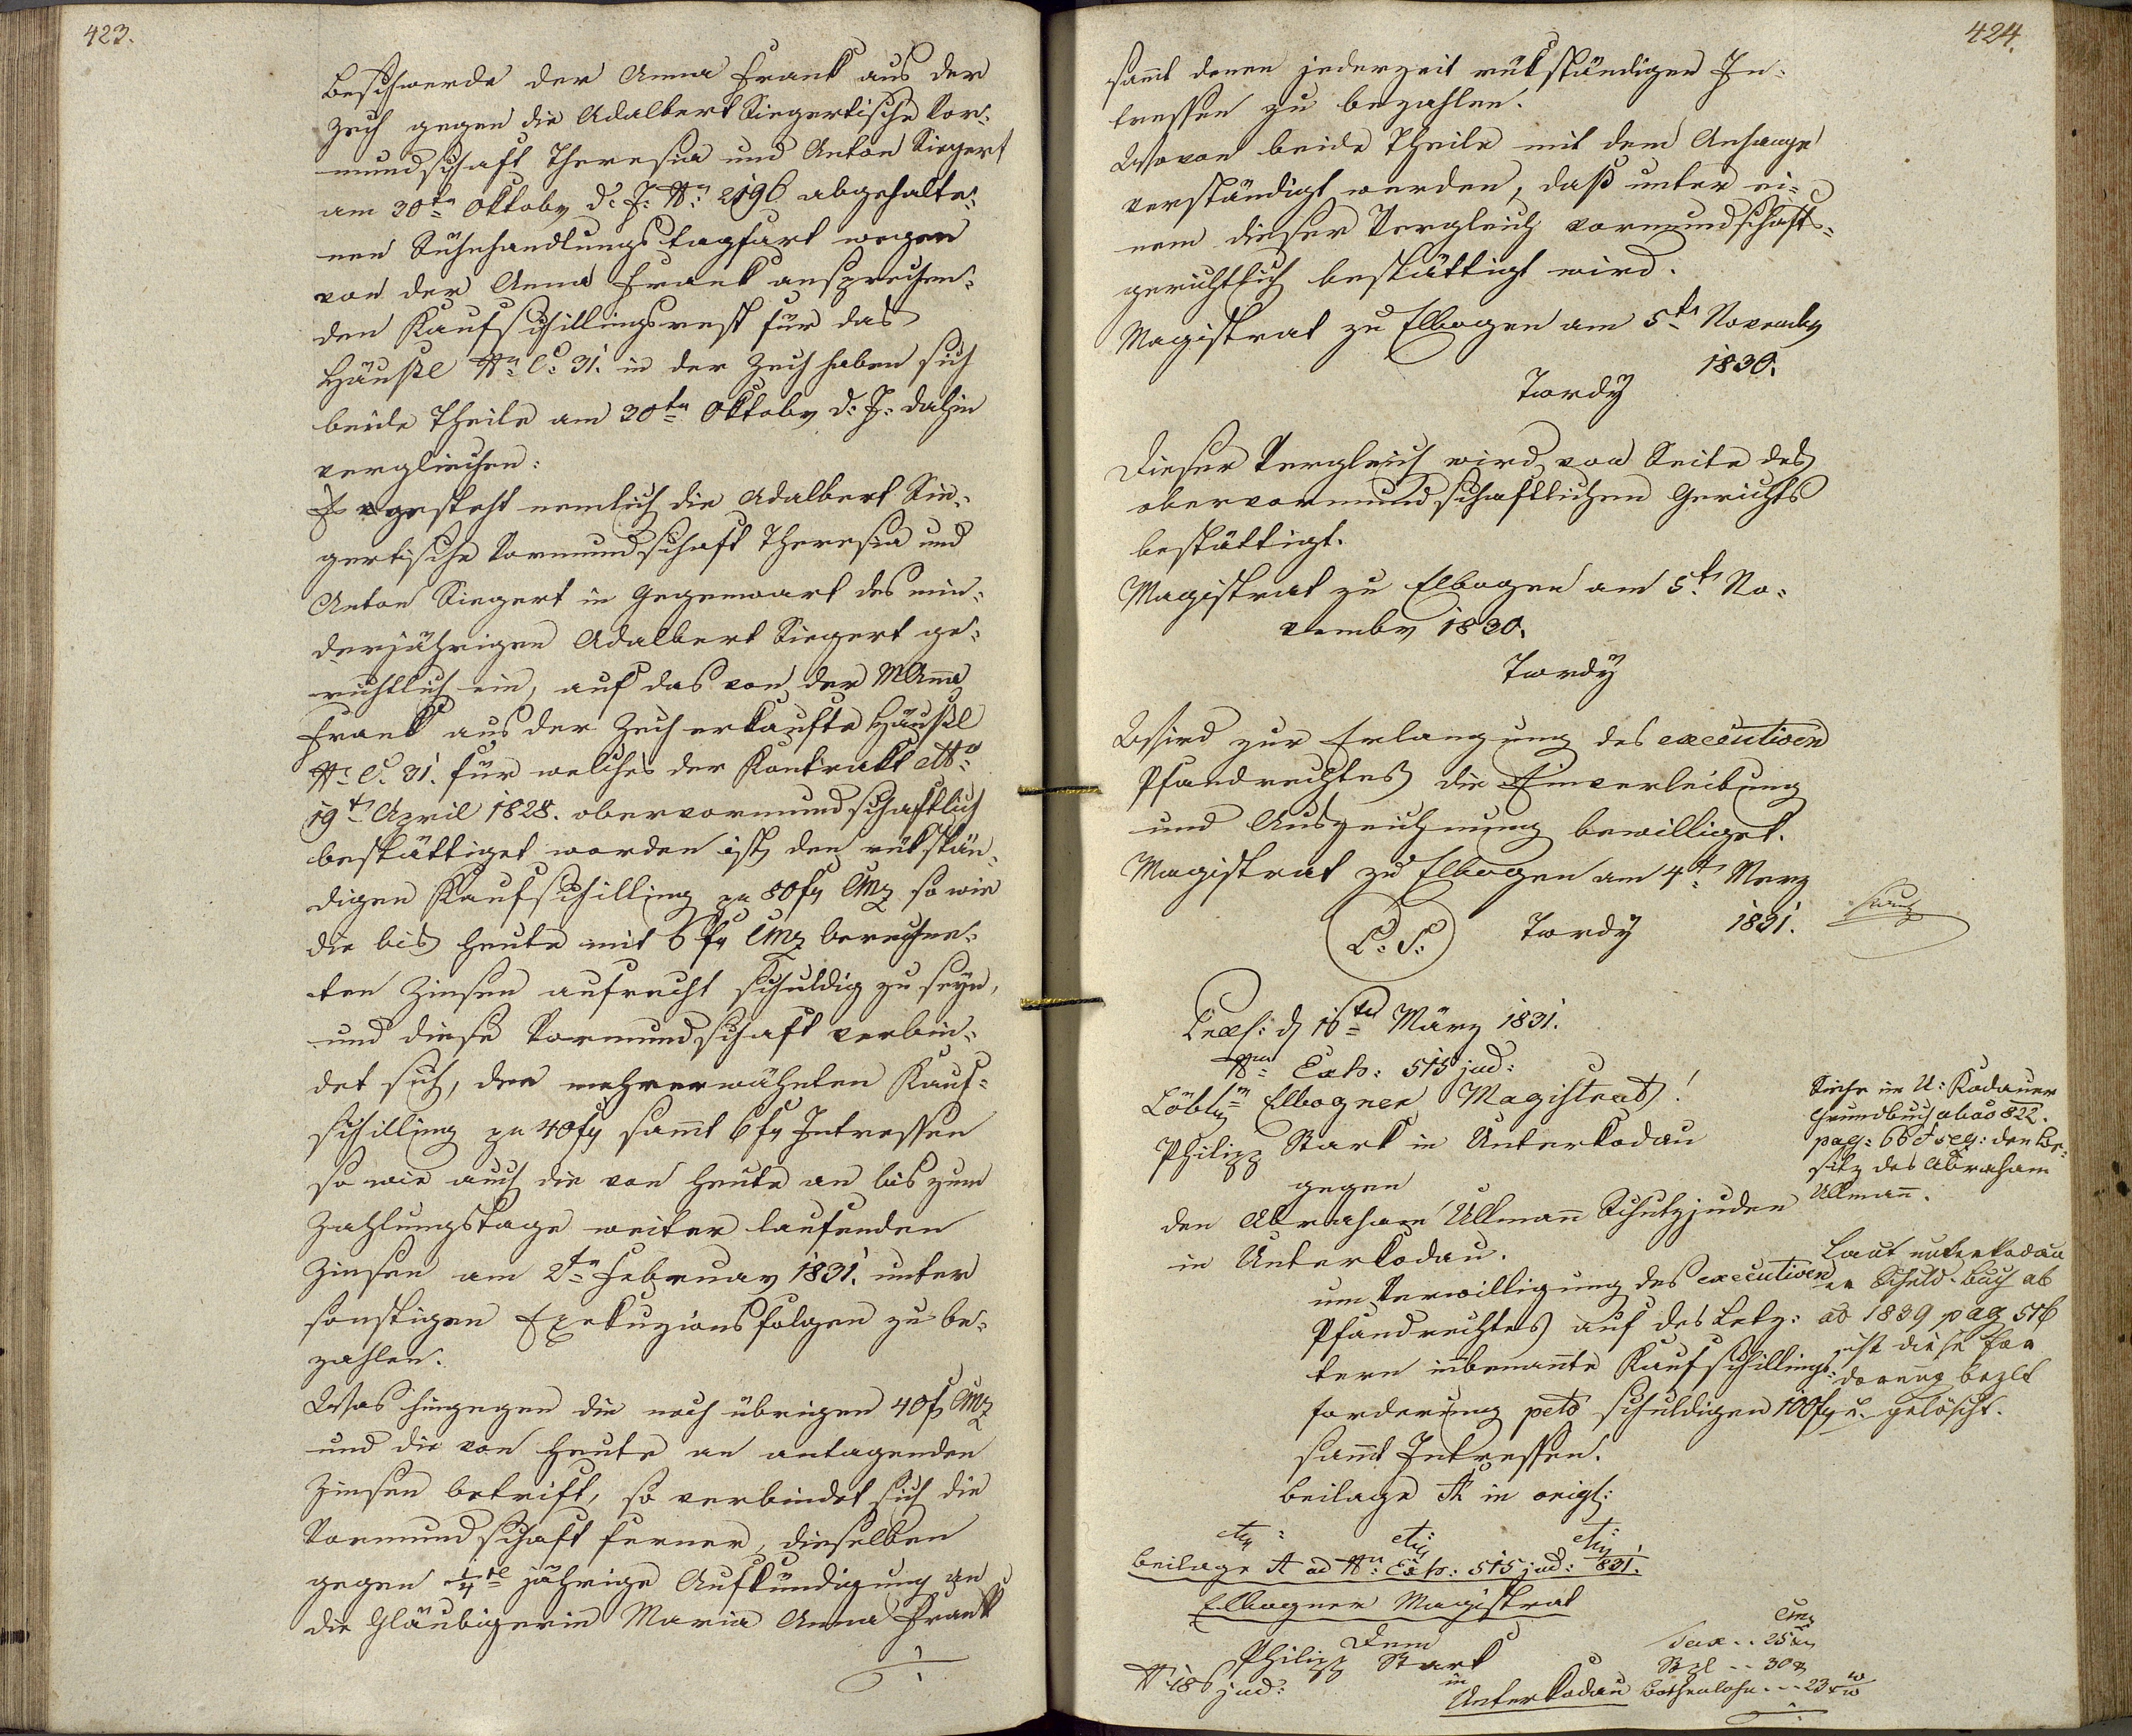 423.
Beschwerde der Anna Frank aus der
Zech gegen die Adalbert Siegertische Vor-
mundschaft Theresia und Anton Siegert
am 30tn Oktobr d: J: N: 2196 abgehalte-
nen Sühnhandlungstagfart wegen
von der Anna Frank ansprechen-
den Kaufschillingsrest für das
Häußl N: C: 31. in der Zech haben sich
beide Theile am 30tn Oktobr d: J: dahin
verglichen:
gesteht nemlich die Adalbert Sie-
gertische Vormundschaft Theresia und
Anton Siegert in Gegenwart des min-
derjährigen Adalbert Siegert ge-
richtlich ein, auf das von der M Anna
Frank aus der Zech erkaufte Häußl
N: C: 31. für welches der Kontrakt
19t April 1828. obervormundschaftlich
bestättiget worden ist, den rükstän-
digen Kaufschilling pr 80 f CMz so wie
die bis heute mit 6 f CMz berechne-
ten Zinsen aufrecht schuldig zu seyn,
und diese Vormundschaft verbin-
det sich, den mehrerwähnten Kauf-
schilling pr 40 f samt 6 f Intressen
so wie auch die von heute an bis zum
Zahlungstage weiter laufenden
Zinsen am 2tn Februar 1831. unter
sonstigen Exekuzionsfolgen zu be-
zahlen.
Was hingegen die noch übrigen 40 f CMz
und die von heute an antagenden
Zinsen betrift, so verbindet sich die
Vormundschaft ferner, dieselben
gegen 1/4tl jährige Aufkündigung an
die Gläubigerin Maria Anna Frank
424.
samt denen jederzeit rükständigen In-
tressen zu bezahlen.
Wovon beide Theile mit dem Anhange
verständigt werden, daß unter ei-
nem dieser Vergleich vormundschafts-
gerichtlich bestättigt wird.
Magistrat zu Elbogen am 5tn Novembr
1830.
Tordy
Dieser Vergleich wird von Seite des
obervormundschaftlichen Gerichts
bestättigt.
Magistrat zu Elbogen am 5t No-
vembr 1830.
Tordy
Wird zur Erlangung des executiven
Pfandrechtes die Einverleibung
und Auszeichnung bewilliget.
Magistrat zu Elbogen am 4t Merz
L: S: Tordy 1831.
Praes: d 16ten März 1831.
Nro Exh: 515 jud:
Löbl Elbogner Magistrat!
Philipp Stark in Unterkodau
gegen
den Abraham Ullmann Schutzjuden
in Unterkodau.
um Verwilligung des executiven
Pfandrechtes auf des Letz-
tern inbenannte Kaufschillings-
forderung peto schuldigen 100 f
samt Intressen.
Beilage A in origl:
Siehe im U: Kodauer
Grundbuch abao 822.
pag: 66 et seq: den Be-
sitz des Abraham
Ullmann.
Laut unterkodau
er Schuld-buch ab
ao 1839 pag 516
ist diese For
derung bezlt
u. gelöscht.
Beilage A ad Nr: Exh: 515 jud: 831.
Elbogner Magistrat
Dem
Philipp Stark
in
Unterkodau
N 186 jud:
CMz
Tax .. 25 x
Stpl .. 30 x
Bothenlohn .. 23 x